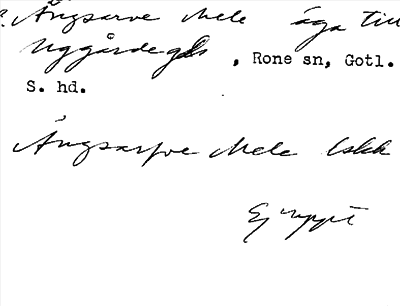 Ängsarve Mele äga till
Nygårde gds, Rone sn, Gotl.
S. hd.
Ängsarve Mele lskk
Ej uppt